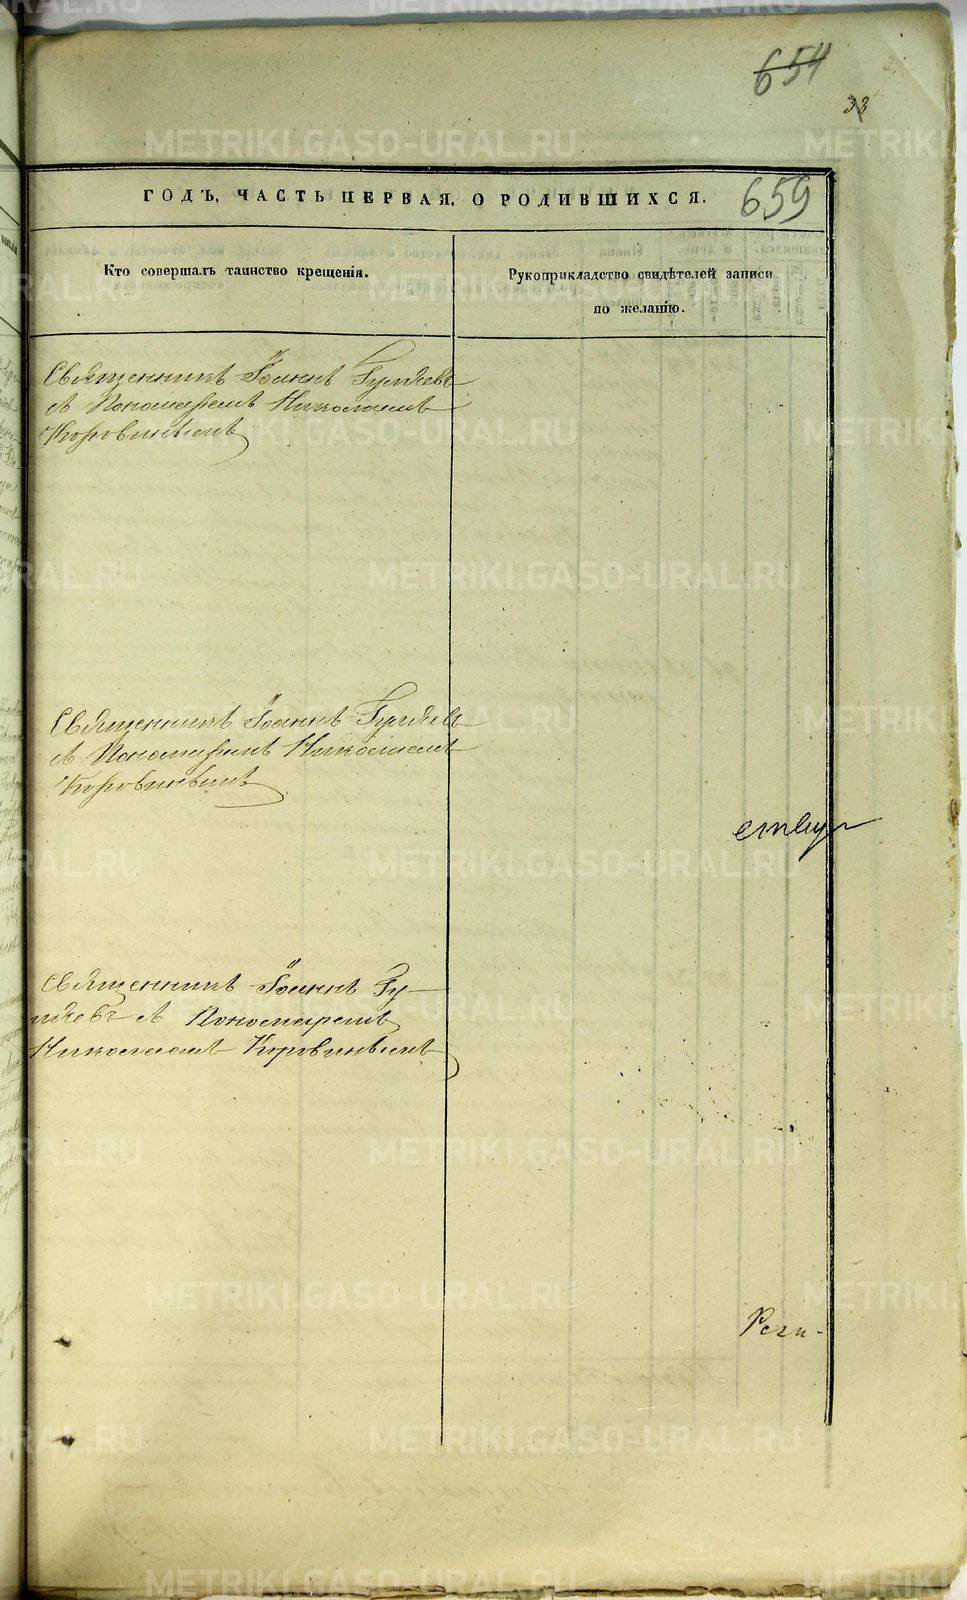 654
33
659
ГОДЪ, ЧАСТЬ ПЕРВАЯ, О РОДИВШИХСЯ.
Кто совершалъ таинство крещенія.
Рукоприкладство свидѣтелей записи
по желанію.
Священникъ Іоаннъ Гуляевъ
съ Пономаремъ Николаемъ
Коровинымъ
Священникъ Іоаннъ Гуляевъ
съ Пономаремъ Николаемъ
Коровинымъ
ствую
Священникъ Іоаннъ Гу-
ляевъ съ Пономаремъ
Николаемъ Коровинымъ
Реги-
METRIKI.GASO-URAL.RU